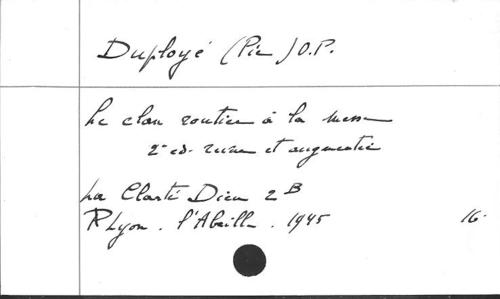 Duployé (Pie) O.P.
Le clan routier à la messe
2e ed. revue et augmentée
La Clarté Dieu 2 B
R Lyon. l'Abeille. 1945 16.